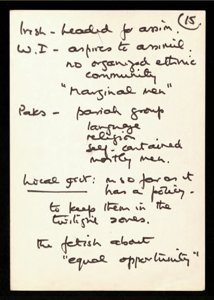 15
Irish - headed for assim.
W.I - aspires to assimil.
no organized ethnic
community
"Marginal men"
Paks - pariah group
language
religion
self-contained
mostly men.
Local govt: in so far as it
has a policy -
to keep them in the
twilight zones.
the fetish about
"equal opportunity"